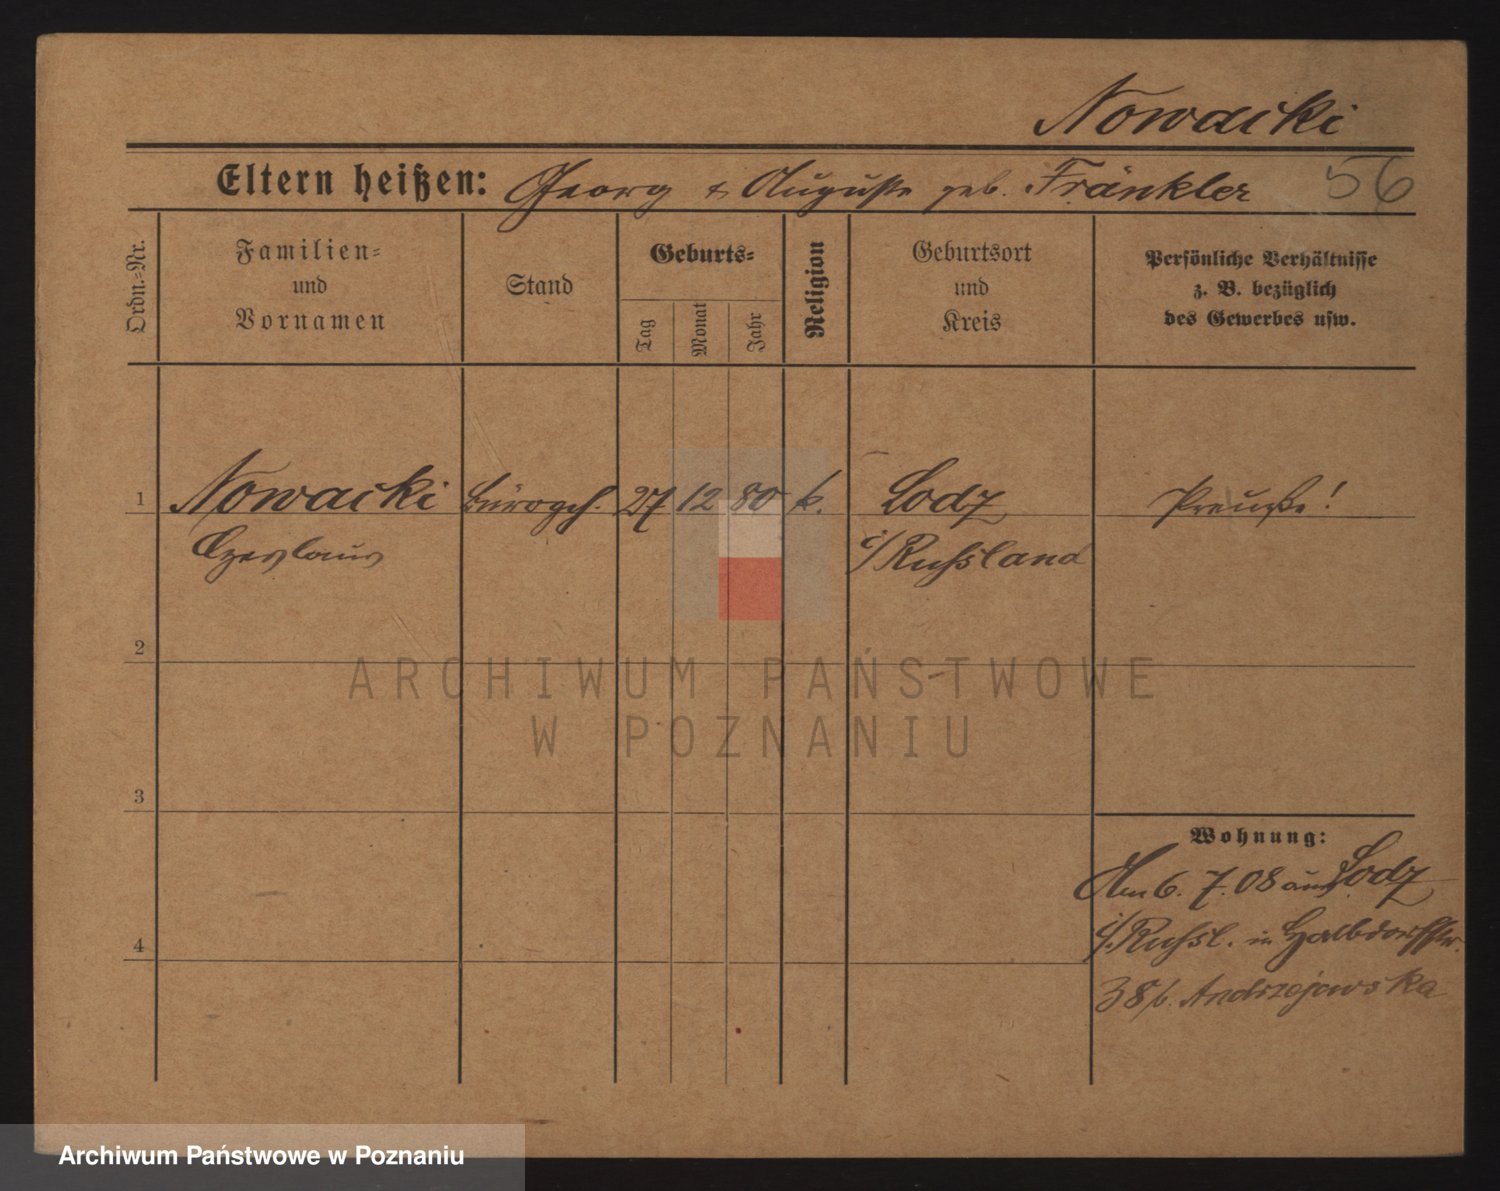 Nowacki
Eltern heißen: Georg & Auguste geb. Fränkler 56
Ordn.-Nr.
Familien-
und
Vornamen
Stand
Geburts-
Tag
Monat
Jahr
Religion
Geburtsort
und
Kreis
Persönliche Verhältnisse
z. B. bezüglich
des Gewerbes usw.
1 Nowacki Bürogeh. 27 12 80 k. Lodz Preuße!
Czeslaus i/Russland
2
ARCHIWUM PAŃSTWOWE
W POZNANIU
3
Wohnung:
Am 6. 7. 08 aus Lodz
i/Russl. in Halbdorfstr.
4
38 b. Andrzejewska
Archiwum Państwowe w Poznaniu